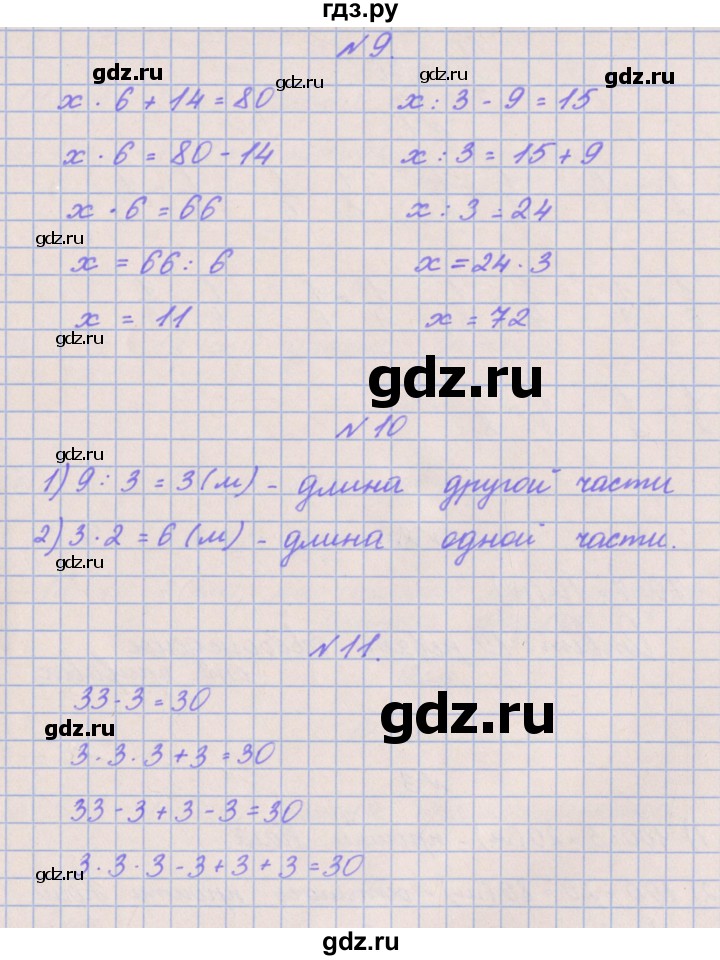 гдз.ру
№9.
gdz.ru gdz.ru gdz.ru gdz.ru
x · 6 + 14 = 80
x : 3 - 9 = 15
x · 6 = 80 - 14
x : 3 = 15 + 9
x · 6 = 66
x : 3 = 24
gdz.ru
x = 66 : 6
x = 24 · 3
x = 11
x = 72
gdz.ru
gdz.ru
№10
gdz.ru
1) 9 : 3 = 3 (м) - длина другой части
2) 3 · 2 = 6 (м) - длина одной части.
gdz.ru
№11.
33 - 3 = 30
gdz.ru
gdz.ru
3 · 3 · 3 + 3 = 30
33 - 3 + 3 - 3 = 30
3 · 3 · 3 - 3 + 3 + 3 = 30
gdz.ru
gdz.ru